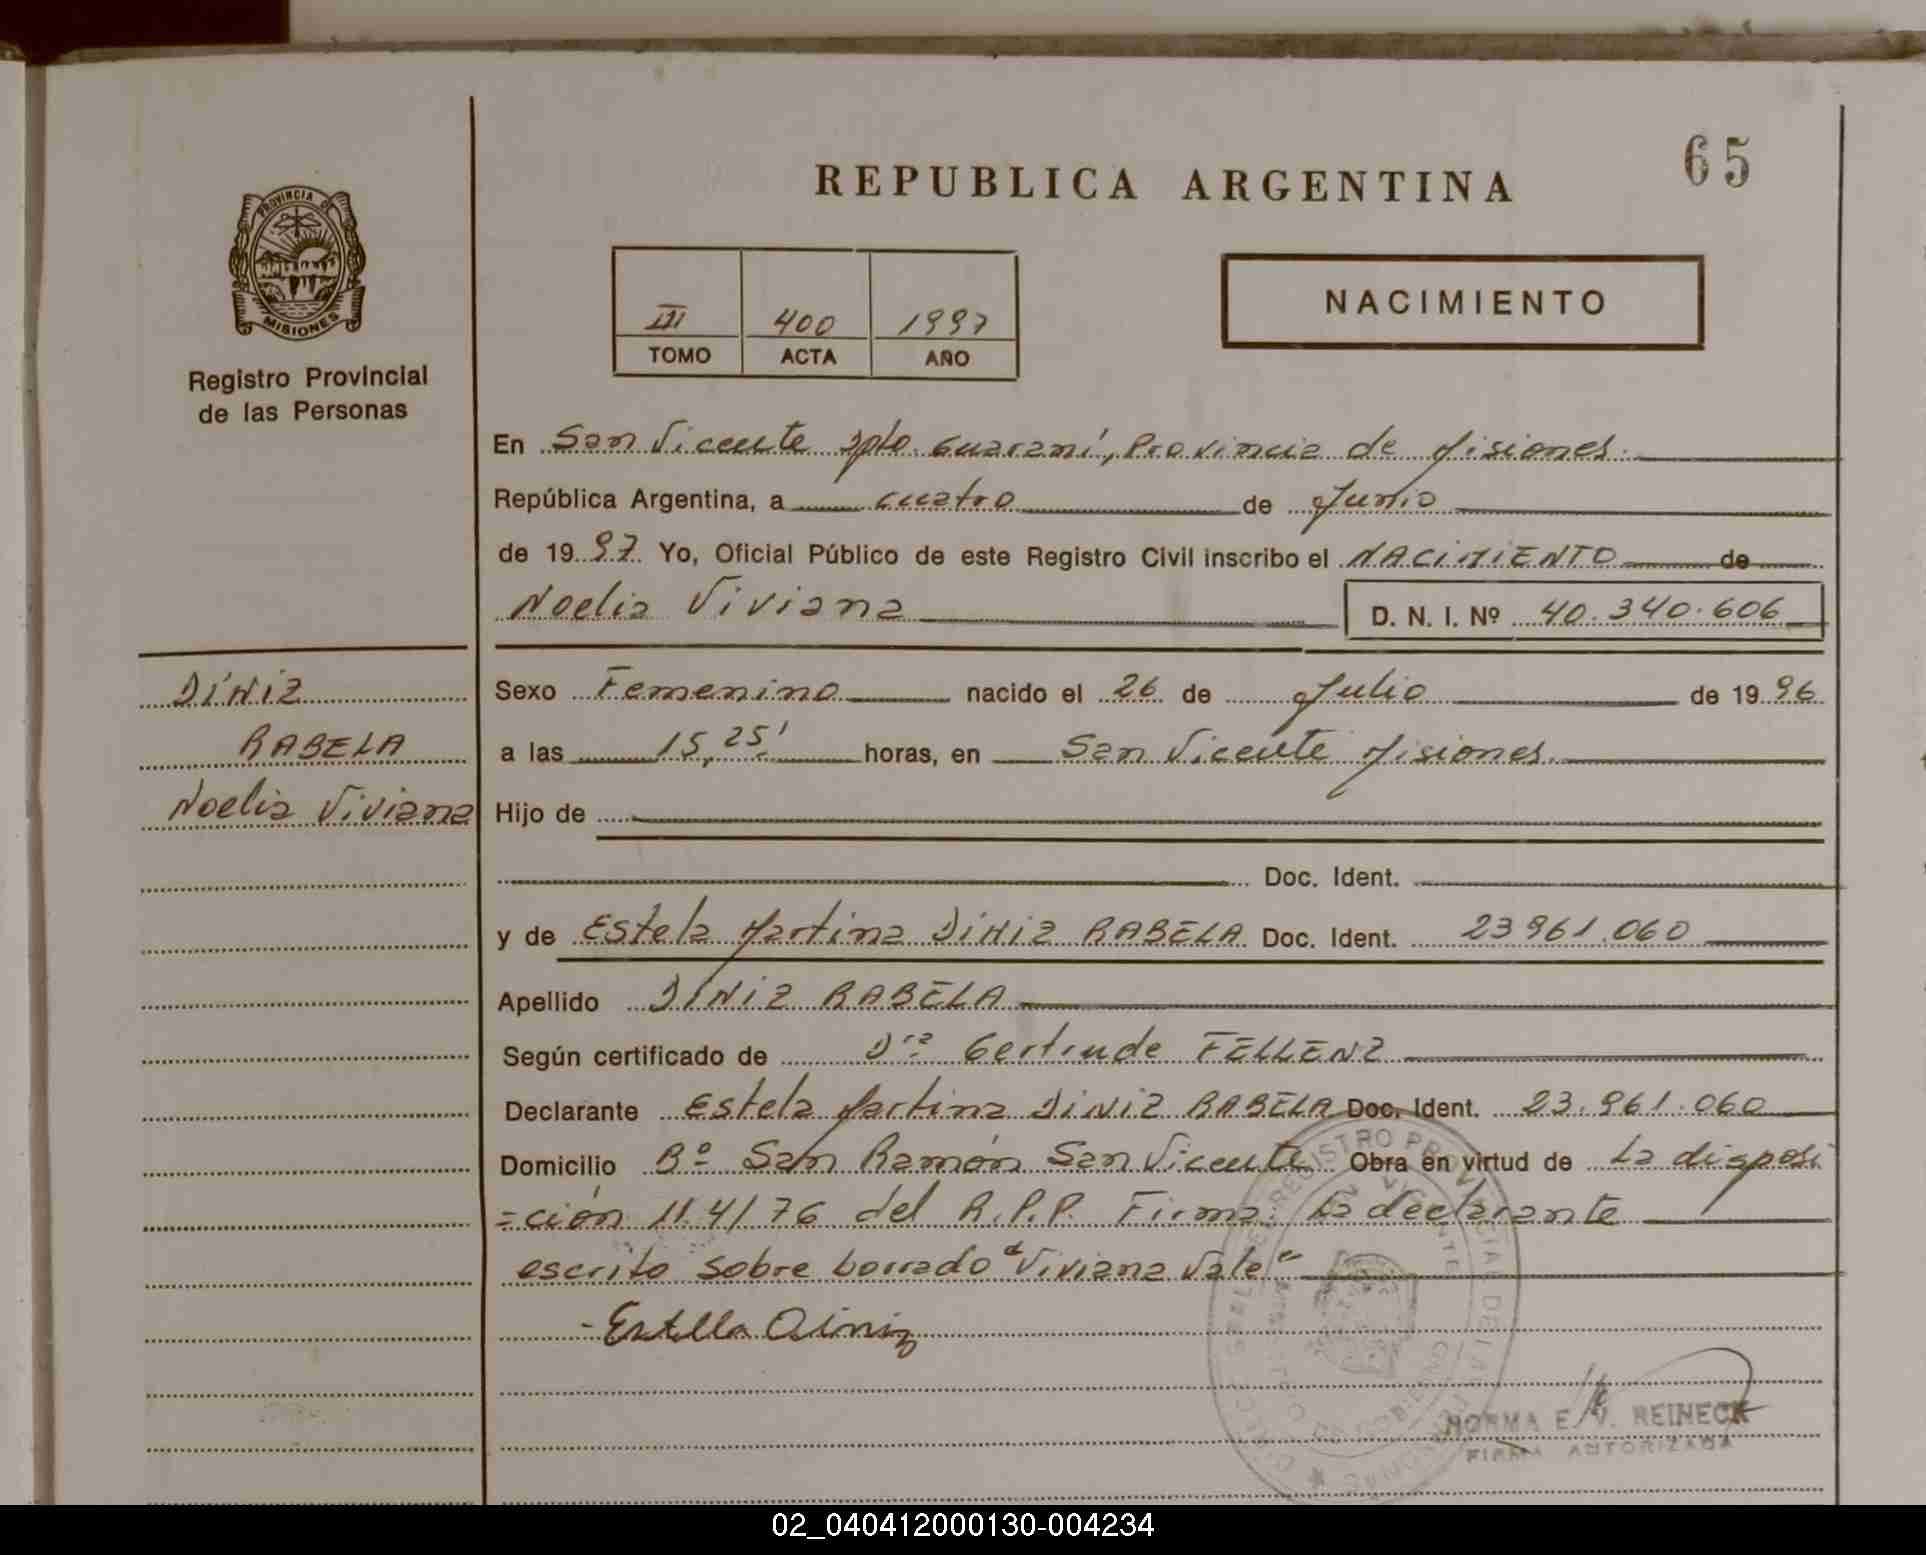 65
REPUBLICA ARGENTINA
PROVINCIA DE
MISIONES
Registro Provincial
de las Personas
III 400 1997
TOMO ACTA AÑO
NACIMIENTO
En San Vicente Dpto. Guaraní, Provincia de Misiones.
República Argentina, a cuatro de Junio
de 1997. Yo, Oficial Público de este Registro Civil inscribo el NACIMIENTO de
Noelia Viviana D. N. I. Nº 40.340.606
DiNiZ
RABELA
Noelia Viviana
Sexo Femenino nacido el 26 de Julio de 1996
a las 15,25' horas, en San Vicente Misiones.
Hijo de
Doc. Ident.
y de Estela Martina DiNiZ RABELA Doc. Ident. 23961.060
Apellido DiNiZ RABELA
Según certificado de Dra Gertrude FELLENZ
Declarante Estela Martina DiNiZ RABELA Doc. Ident. 23.961.060
Domicilio Bº San Ramón San Vicente Obra en virtud de La disposi
=ción 11.4/76 del R.P.P. Firma: La declarante
escrito sobre borrado "Viviana Vale"
- Estella Diniz
NORMA E. V. REINECK
FIRMA AUTORIZADA
02_040412000130-004234